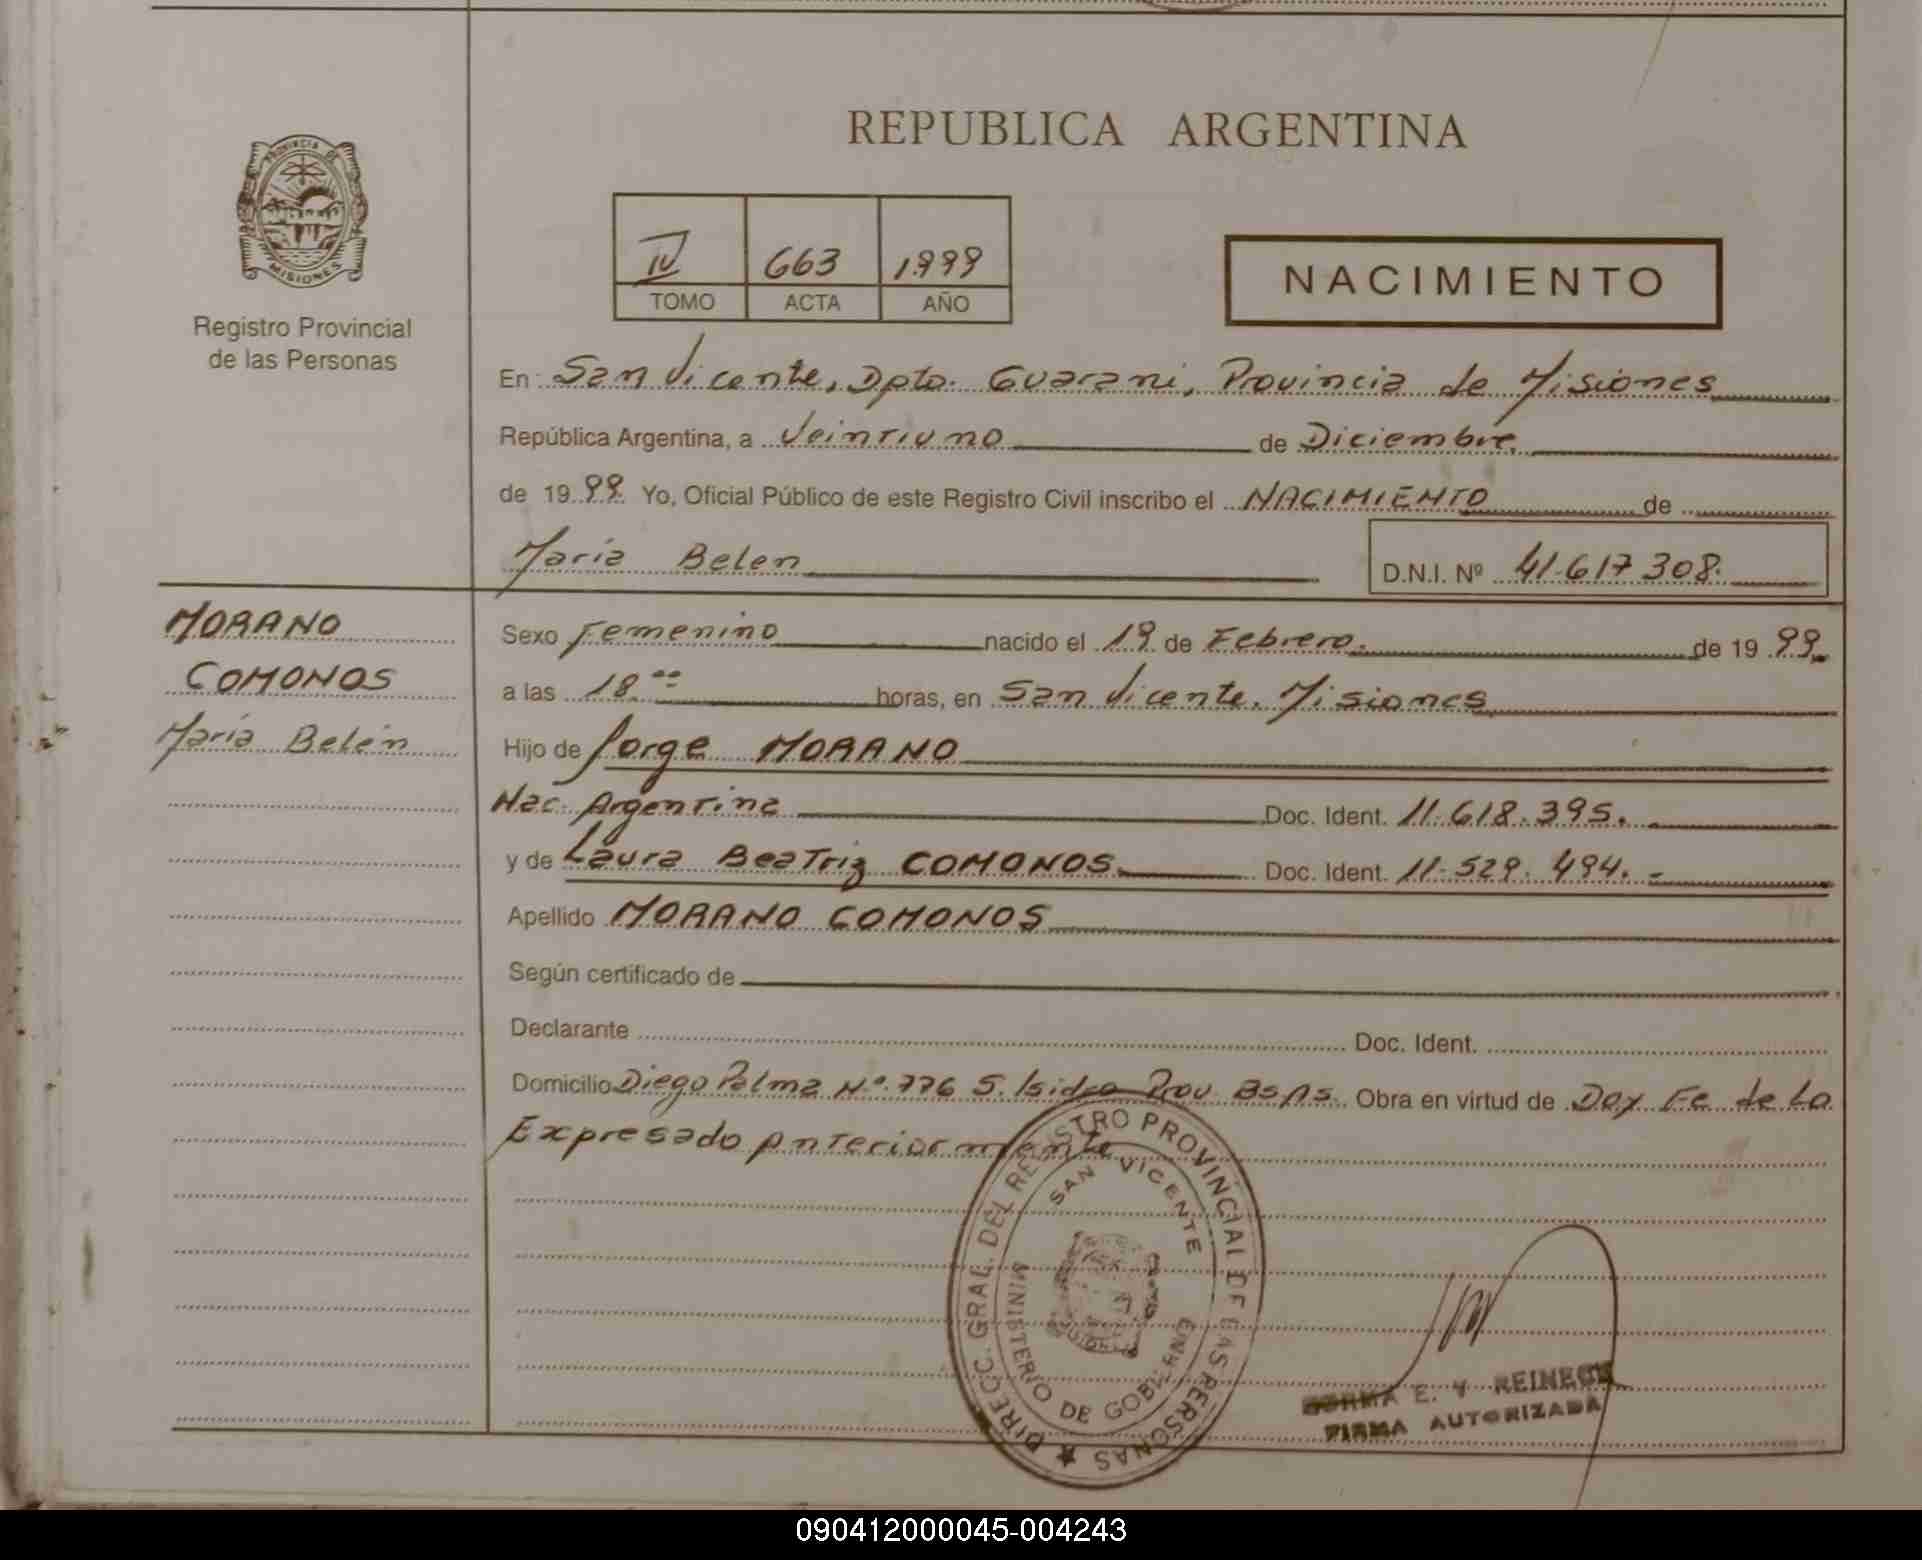 REPUBLICA ARGENTINA
PROVINCIA DE
MISIONES
Registro Provincial
de las Personas
IV 663 1999
TOMO ACTA AÑO
NACIMIENTO
En San Vicente, Dpto. Guarani, Provincia de Misiones
República Argentina, a Veintiuno de Diciembre
de 1999 Yo, Oficial Público de este Registro Civil inscribo el NACIMIENTO de
María Belen D.N.I. Nº 41.617.308.
MORANO
COMONOS
María Belén
Sexo Femenino nacido el 19 de Febrero. de 1999
a las 18.00 horas, en San Vicente. Misiones
Hijo de Jorge MORANO
Nac. Argentina Doc. Ident. 11.618.395.
y de Laura Beatriz COMONOS. Doc. Ident. 11.529.494.
Apellido MORANO COMONOS
Según certificado de
Declarante Doc. Ident.
Domicilio Diego Palma Nº 776 S. Isidro Prov. Bs As. Obra en virtud de Doy Fe de Lo
Expresado Anteriormente
DIRECC. GRAL. DEL REGISTRO PROVINCIAL DE LAS PERSONAS
SAN VICENTE
MINISTERIO DE GOBIERNO
E. V. REINECK
FIRMA AUTORIZADA
090412000045-004243